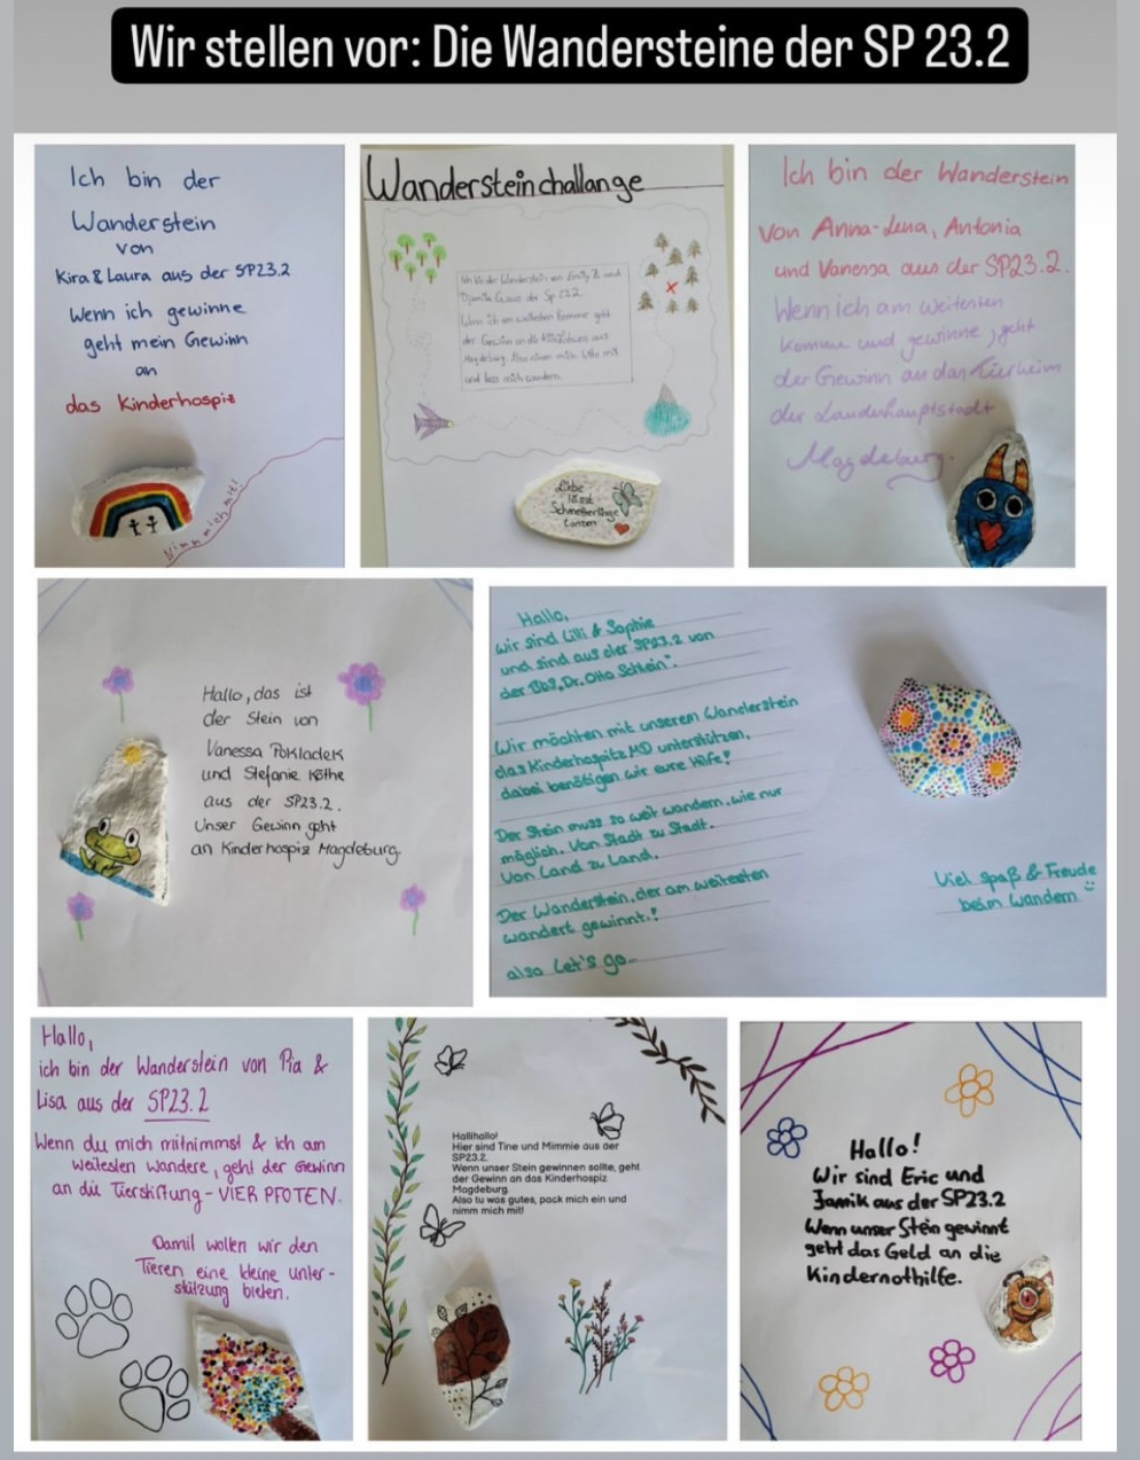 Wir stellen vor: Die Wandersteine der SP 23.2
Ich bin der
Wanderstein
von
Kira & Laura aus der SP23.2
Wenn ich gewinne
geht mein Gewinn
an
das Kinderhospiz
Nimm mich mit!
Wandersteinchallange
Ich bin der Wanderstein von Emily B. und
aus der Sp 23.2.
Wenn ich am weitesten komme geht
der Gewinn an die
Magdeburg. Also nimm mich bitte mit
und lass mich wandern.
Liebe
lässt
Schmetterlinge
tanzen
Ich bin der Wanderstein
von Anna-Lena, Antonia
und Vanessa aus der SP23.2.
Wenn ich am weitesten
komme und gewinne, geht
der Gewinn an das Tierheim
der Landeshauptstadt
Magdeburg.
Hallo, das ist
der Stein von
Vanessa Pokladek
und Stefanie Köthe
aus der SP23.2.
Unser Gewinn geht
an Kinderhospiz Magdeburg
Hallo,
wir sind Lilli & Sophie
und sind aus der SP23.2 von
der BbS „Dr. Otto Schlein".
Wir möchten mit unserem Wanderstein
das Kinderhospitz MD unterstützen,
dabei benötigen wir eure Hilfe!
Der Stein muss so weit wandern, wie nur
möglich. Von Stadt zu Stadt.
Von Land zu Land.
Der Wanderstein, der am weitesten
wandert gewinnt.!
also Let's go...
Viel Spaß & Freude
beim Wandern
Hallo,
ich bin der Wanderstein von Pia &
Lisa aus der SP23.2
Wenn du mich mitnimmst & ich am
weitesten wandere, geht der Gewinn
an die Tierstiftung - VIER PFOTEN.
Damit wollen wir den
Tieren eine kleine Unter-
stützung bieten.
Hallihallo!
Hier sind Tine und Mimmie aus der
SP23.2.
Wenn unser Stein gewinnen sollte, geht
der Gewinn an das Kinderhospiz
Magdeburg.
Also tu was gutes, pack mich ein und
nimm mich mit!
Hallo!
Wir sind Eric und
Jannik aus der SP23.2
Wenn unser Stein gewinnt
geht das Geld an die
Kindernothilfe.